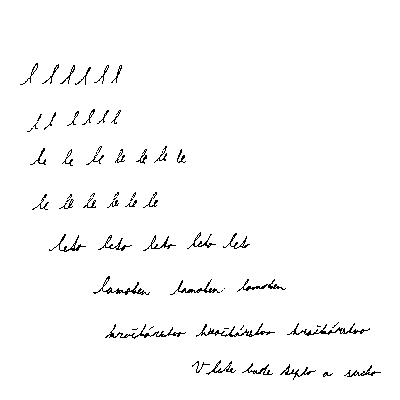 l l l l l l
l l l l l l
le le le le le le le
le le le le le le
leto leto leto leto leto
lamoken lamoken lamoken
hračkárstvo hračkárstvo hračkárstvo
V lete bude teplo a sucho